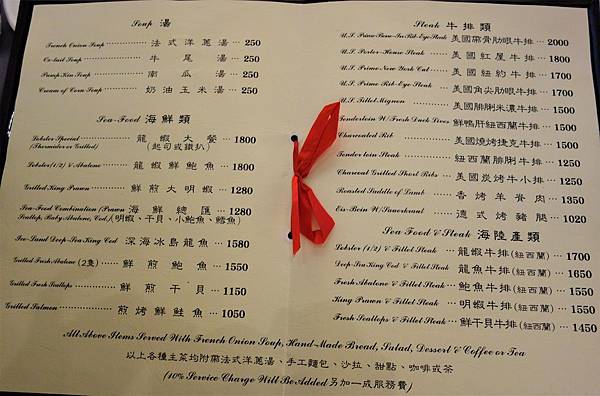 Soup 湯
French Onion Soup 法式洋蔥湯 250
Ox-tail Soup 牛尾湯 250
Pump Kin Soup 南瓜湯 250
Cream of Corn Soup 奶油玉米湯 250
Sea-Food 海鮮類
Lobster Special 龍蝦大餐 1800
(Thermidor or Grilled) (起司或鐵扒)
Lobster(1/2) & Abalone 龍蝦鮮鮑魚 1800
Grilled King Prawn 鮮煎大明蝦 1280
Sea-Food Combination (Prawn 海鮮總匯 1280
Scallop, Baby Abalone, Cod.) (明蝦、干貝、小鮑魚、鱈魚)
Ice-Land Deep-Sea King Cod 深海冰島龍魚 1580
Grilled Fresh Abalone (2隻) 鮮煎鮑魚 1550
Grilled Fresh Scallops 鮮煎干貝 1150
Grilled Salmon 煎烤鮮鮭魚 1050
Steak 牛排類
U.S. Prime Bone-In Rib-Eye Steak 美國帶骨肋眼牛排 2000
U.S. Porter-House Steak 美國紅屋牛排 1800
U.S. Prime New York Cut 美國紐約牛排 1700
U.S. Prime Rib-Eye Steak 美國角尖肋眼牛排 1700
U.S. Fillet Mignon 美國腓脷米濃牛排 1500
Tenderloin W/Fresh Duck Liver 鮮鴨肝紐西蘭牛排 1500
Charcoaled Rib 美國燒烤捷克牛排 1500
Tenderloin Steak 紐西蘭腓脷牛排 1250
Charcoal Grilled Short Ribs 美國炭烤牛小排 1250
Roasted Saddle of Lamb 香烤羊脊肉 1350
Eis-Bein W/Sauerkraut 德式烤豬腿 1020
Sea Food & Steak 海陸產類
Lobster (1/2) & Fillet Steak 龍蝦牛排(紐西蘭) 1700
Deep-Sea King Cod & Fillet Steak 龍魚牛排(紐西蘭) 1650
Fresh Abalone & Fillet Steak 鮑魚牛排(紐西蘭) 1550
King Prawn & Fillet Steak 明蝦牛排(紐西蘭) 1550
Fresh Scallops & Fillet Steak 鮮干貝牛排(紐西蘭) 1450
All Above Items Served With French Onion Soup, Hand-Made Bread, Salad, Dessert & Coffee or Tea
以上各種主菜均附帶法式洋蔥湯、手工麵包、沙拉、甜點、咖啡或茶
(10% Service Charge Will Be Added 另加一成服務費)